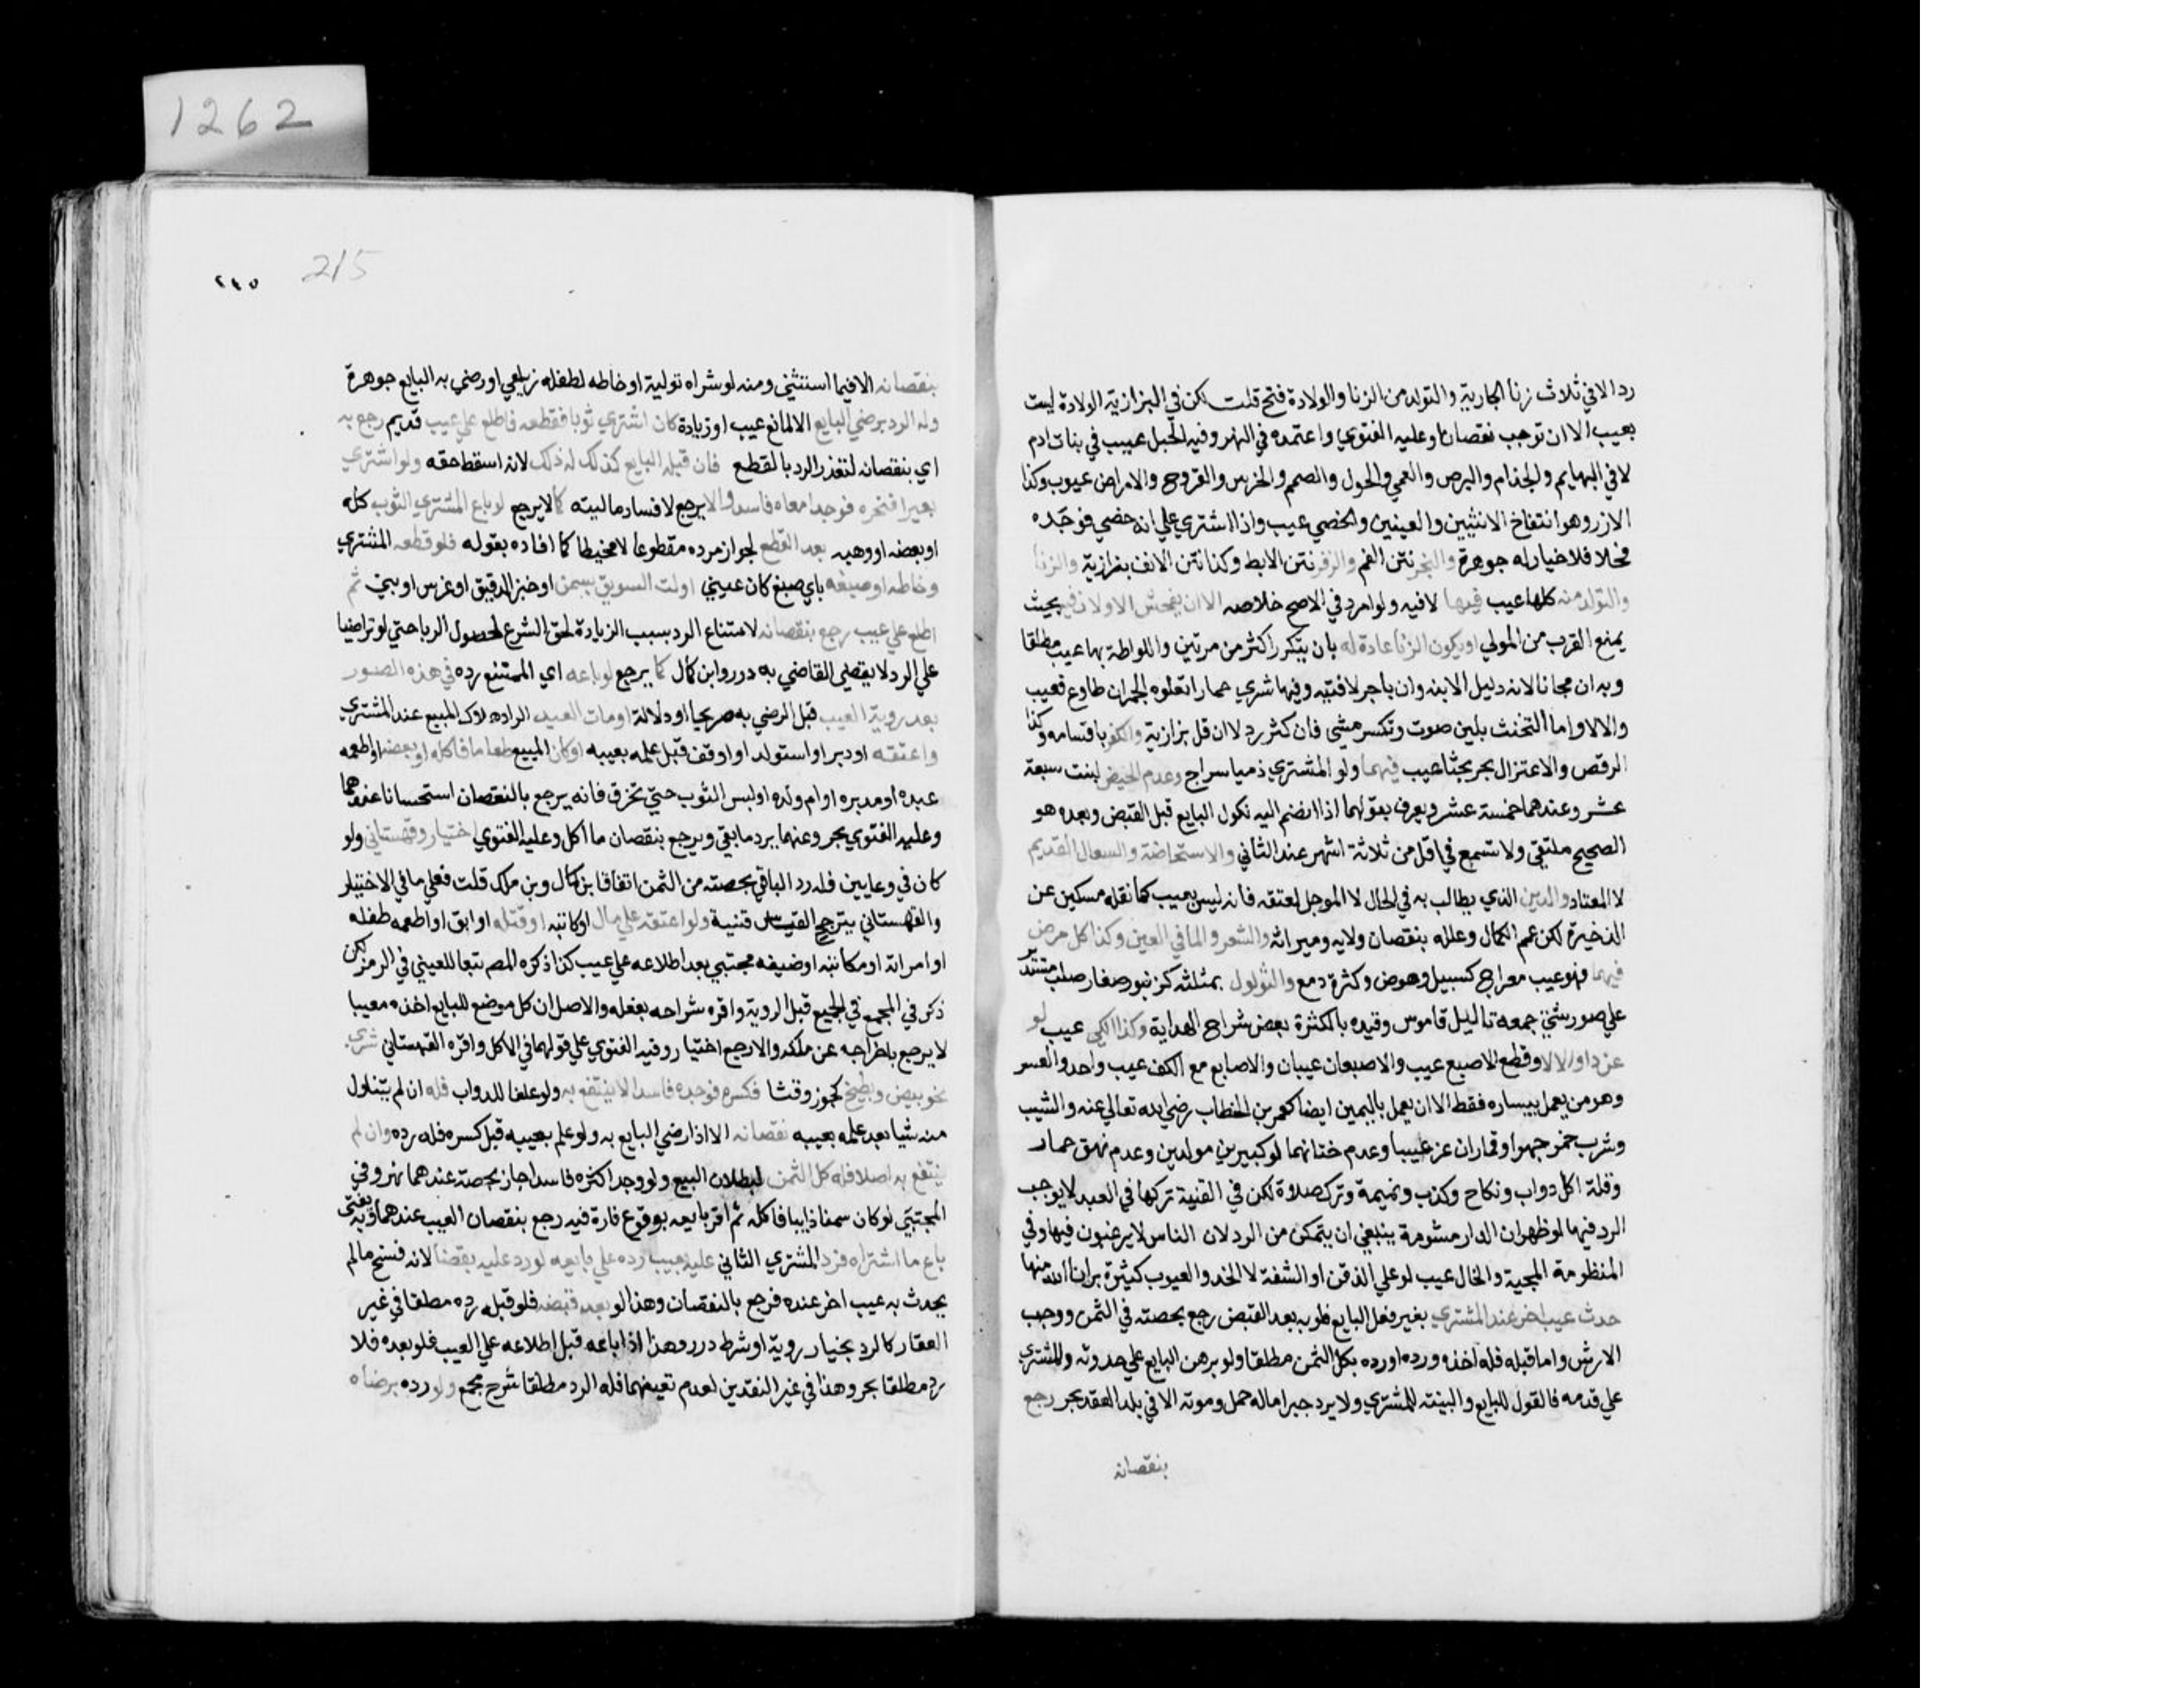 1262
رد الا في ثلاث زنا الجارية والتولد من الزنا والولادة فتح قلت لكن في البزازية الولادة ليست
بعيب الا ان توجب نقصانا وعليه الفتوي واعتمده في النهر وفيه الحبل عيب في بنات ادم
لا في البهايم والجذام والبرص والعمي والحول والصمم والخرس والقروح والامراض عيوب وكذا
الازر وهو انتفاخ الانثيين والعينين والخصي عيب واذا اشتري علي انه خصي فوجده
فحلا فلا خيار له جوهرة والبخر نتن الفم والزفر نتن الابط وكذا نتن الانف بزازية والزنا
والتولد منه كلها عيب فيها لا فيه ولو امرد في الاصح خلاصه الا ان يفحش الاولان فيه بحيث
يمنع القرب من المولي او يكون الزنا عادة له بان يتكرر اكثر من مرتين واللواطة بها عيب مطلقا
وبه ان مجانا لانه دليل الابنه وان باجر لا قنيه وفيها شري حمارا تعلوه الحمر ان طاوع فعيب
والا لا واما التخنث بلين صوت وتكسر مشي فان كثر رد لا ان قل بزازية والكفر باقسامه وكذا
الرفض والاعتزال بحر بحثا عيب فيهما ولو المشتري ذميا سراج وعدم الحيض لبنت سبعة
عشر وعندهما خمسة عشر ويعرف بقولها اذا انضم اليه نكول البايع قبل القبض وبعده هو
الصحيح ملتقي ولا تسمع في اقل من ثلاثة اشهر عند الثاني والاستحاضة والسعال القديم
لا المعتاد والدين الذي يطالب به في الحال لا الموجل لعتقه فانه ليس بعيب كما نقله مسكين عن
الذخيرة لكن عمم الكمال وعلله بنقصان ولايه وميراثه والشعر والما في العين وكذا كل مرض
فيهما فهو عيب معراج كسبيل وحوض وكثرة دمع والثولول بمثلثه كزنبور صغار صلب مستدير
علي صور شتي جمعه تاليل قاموس وقيده بالكثرة بعض شراح الهداية وكذا الكي عيب لو
عن داء والا لا وقطع الاصبع عيب والاصبعان عيبان والاصابع مع الكف عيب واحد والعسر
وهو من يعمل بيساره فقط الا ان يعمل باليمين ايضا كعمر بن الخطاب رضي الله تعالي عنه والشيب
وشرب خمر جهرا وقمار ان عد عيبا وعدم ختانهما لو كبيرين مولدين وعدم نهق حمار
وقلة اكل دواب ونكاح وكذب ونميمة وترك صلاة لكن في القنية تركها في العبد لا يوجب
الرد فيها لو ظهر ان الدار مشومة ينبغي ان يتمكن من الرد لان الناس لا يرغبون فيها وفي
المنظومة المحبية والخال عيب لو علي الذقن او الشفة لا الخد والعيوب كثيرة برانا الله منها
حدث عيب اخر عند المشتري بغير فعل البايع فلو به بعد القبض رجع بحصته في الثمن ووجب
الارش واما قبله فله اخذه ورده او رده بكل الثمن مطلقا ولو برهن البايع علي حدوثه والمشتري
علي قدمه فالقول للبايع والبينه للمشتري ولا يرد جبرا ماله حمل وموته الا في بلد العقد بحر رجع
بنقصانه
٢١٥
215
بنقصانه الا فيما استثني ومنه لو شراه تولية او خاطه لطفله زيلعي او رضي به البايع جوهرة
وله الرد برضي البايع الا لمانع عيب او زيادة كان اشتري ثوبا فقطعه فاطلع علي عيب قديم رجع به
اي بنقصانه لتعذر الرد بالقطع فان قبله البايع كذلك له ذلك لانه اسقط حقه ولو اشتري
بعيرا فنحره فوجد امعاه فاسدا لا يرجع لافساد ماليته كما لا يرجع لو باع المشتري الثوب كله
او بعضه او وهبه بعد القطع لجواز مرده مقطوعا لا مخيطا كما افاده بقوله فلو قطعه المشتري
وخاطه او صبغه باي صبغ كان عيني او لت السويق بسمن او خبز الدقيق او غرس او بني ثم
اطلع علي عيب رجع بنقصانه لامتناع الرد بسبب الزيادة لحق الشرع لحصول الربا حتي لو تراضيا
علي الرد لا يقضي القاضي به درر وابن كمال كما يرجع لو باعه اي الممتنع رده في هذه الصور
بعد روية العيب قبل الرضي به صريحا او دلالة او مات العبد المراد هلاك المبيع عند المشتري
واعتقه او دبر او استولد او اوقف قبل علمه بعيبه او كان المبيع طعاما فاكله او بعضه او اطعمه
عبده او مدبره او ام ولده او لبس الثوب حتي تخرق فانه يرجع بالنقصان استحسانا عندهما
وعليه الفتوي بحر وعنهما يرد ما بقي ويرجع بنقصان ما اكل وعليه الفتوي اختيار وقهستاني ولو
كان في وعايين فله رد الباقي بحصته من الثمن اتفاقا ابن كمال وبن ملك قلت فعلي ما في الاختيار
والقهستاني يترجح القياس قنية ولو اعتقه علي مال او كاتبه او قتله او ابق او اطعمه طفله
او امراته او مكاتبه او ضيفه مجتبي بعد اطلاعه علي عيب كذا ذكره المص تبعا للعيني في الرمز لكن
ذكر في المجمع في الجميع قبل الروية واقره شراحه بفعله والاصل ان كل موضع للبايع اخذه معيبا
لا يرجع باخراجه عن ملكه والا رجع اختيار وفيه الفتوي علي قولهما في الاكل واقره القهستاني شري
نحو بيض وبطيخ كجوز وقثا فكسره فوجده فاسدا لا ينتفع به ولو علفا للدواب فله ان لم يتناول
منه شيا بعد علمه بعيبه نقصانه الا اذا رضي البايع به ولو علم بعيبه قبل كسره فله رده وان لم
ينتفع به اصلا فله كل الثمن لبطلان البيع ولو وجد اكثره فاسدا جاز بحصته عندهما نهر وفي
المجتبي لو كان سمنا ذايبا فاكله ثم اقر بايعه بوقوع فارة فيه رجع بنقصان العيب عندهما وبه يفتي
باع ما اشتراه فرد المشتري الثاني عليه بعيب رده علي بايعه لو رد عليه بقضا لانه فسخ ما لم
يحدث به عيب اخر عنده فرجع بالنقصان وهذا لو بعد قبضه فلو قبله رده مطلقا في غير
العقار كالرد بخيار روية او شرط درر وهذا اذا باعه قبل اطلاعه علي العيب فلو بعده فلا
رد مطلقا بحر وهذا في غير النقدين لعدم تعينهما فله الرد مطلقا شرح مجمع ولو رده برضاه